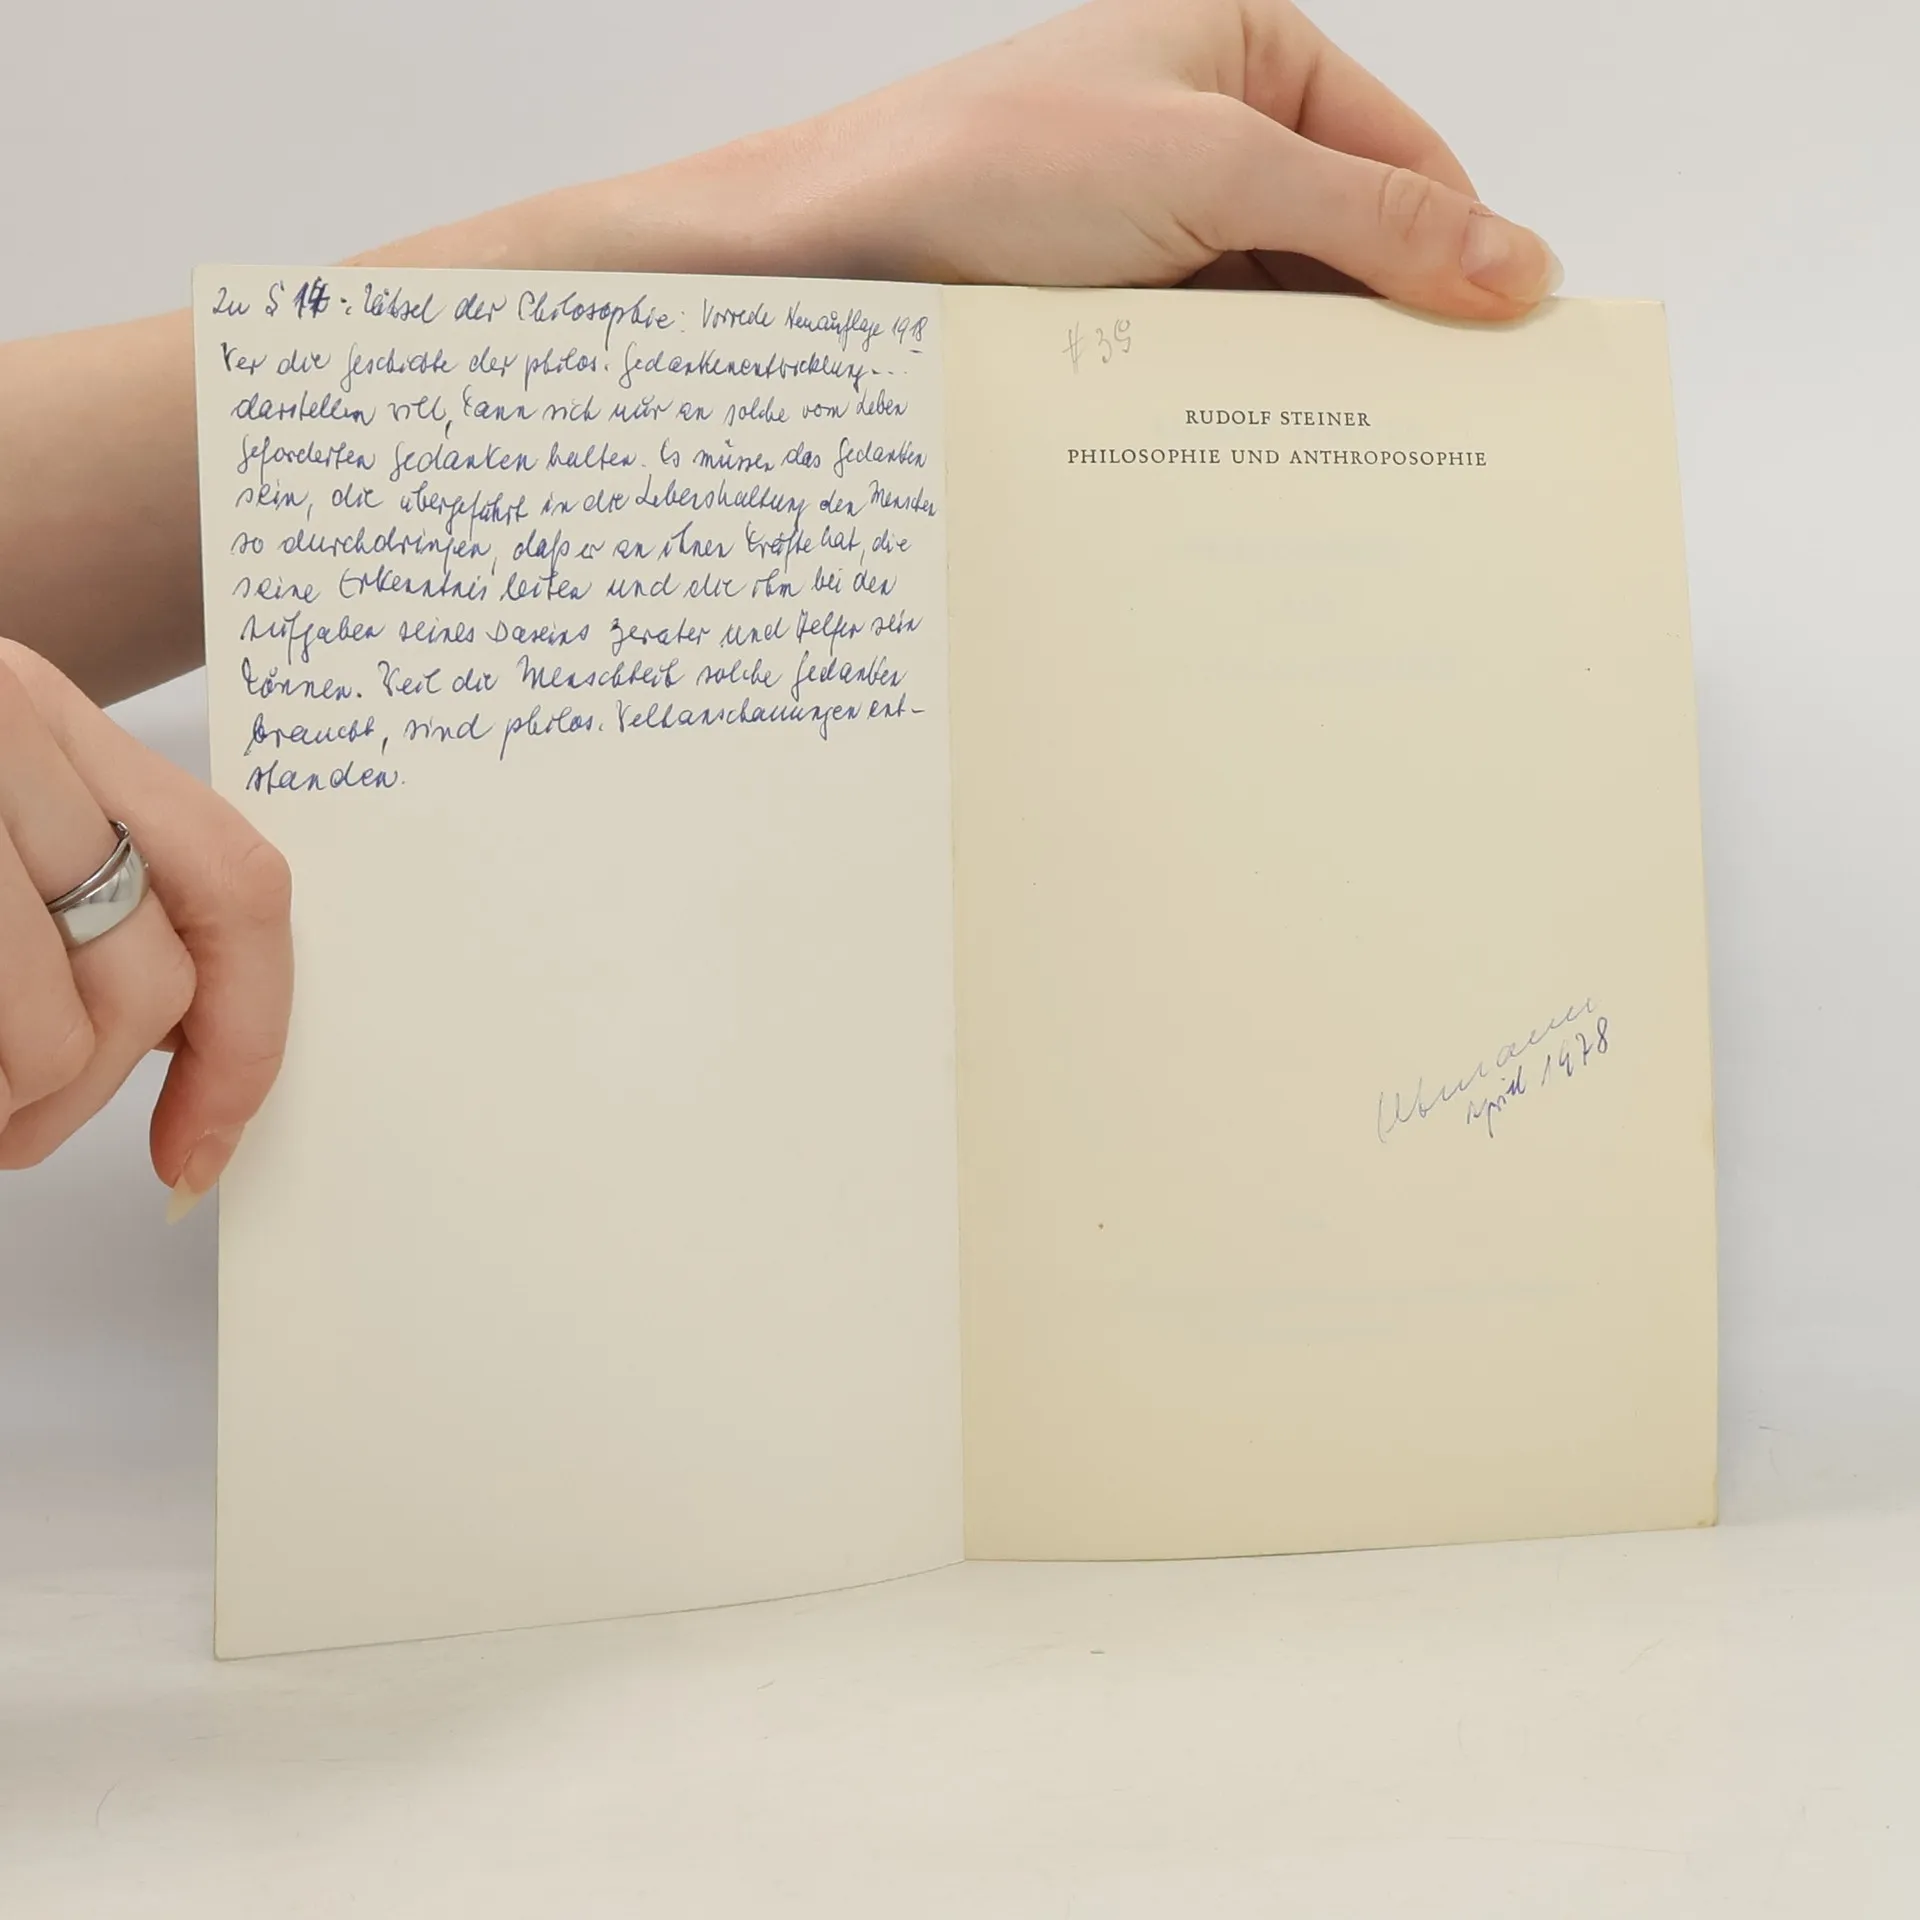 Zu S 14: Rätsel der Philosophie: Vorrede Neuauflage 1918
Wer die Geschichte der philos. Gedankenentwicklung...
darstellen will, kann sich nur an solche vom Leben
geforderten Gedanken halten. Es müssen das Gedanken
sein, die übergeführt in die Lebenshaltung den Menschen
so durchdringen, daß er an ihnen Kräfte hat, die
seine Erkenntnis leiten und die ihm bei den
Aufgaben seines Daseins Berater und Helfer sein
können. Weil die Menschheit solche Gedanken
braucht, sind philos. Weltanschauungen ent-
standen.
#39
RUDOLF STEINER
PHILOSOPHIE UND ANTHROPOSOPHIE
April 1978